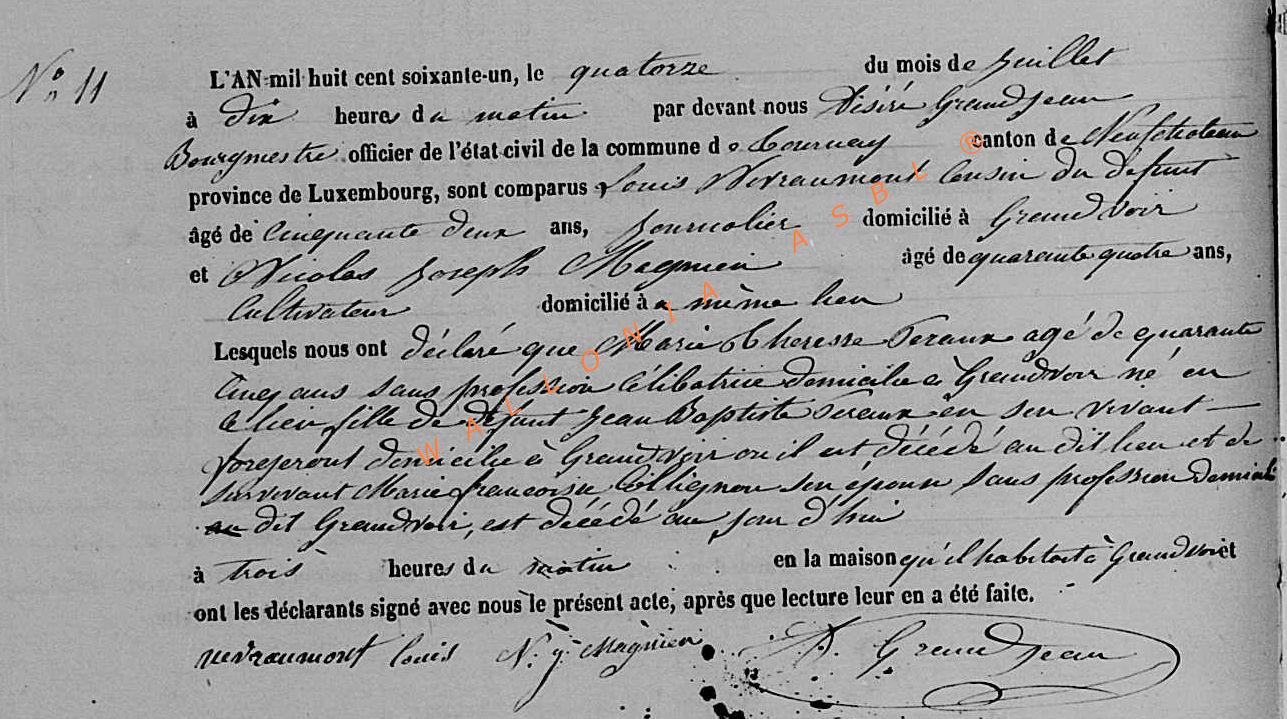 N° 11
L'AN mil huit cent soixante-un, le quatorze du mois de Juillet
à dix heures du matin par devant nous Disiré Grandjean
Bourgmestre officier de l'état civil de la commune de Tournay canton de Neufchateau
province de Luxembourg, sont comparus Louis Nevraumont Cousin du defunt
âgé de Cinquante deux ans, Journalier domicilié à Grandvoir
et Nicolas Joseph Magnien âgé de quarante quatre ans,
Cultivateur domicilié à même lieu
Lesquels nous ont déclaré que Marie Theresse Peraux agé de quarante
Cinq ans sans profession Célibatrice domicilie à Grandvoir né en
ce lieu, fille de defunt Jean Baptiste Peraux en son vivant —
forgeront domicilie à Grandvoir ou il est décédé au dit lieu et de
survivant Marie francoise Collignon son épouse sans profession Domicilé
dit Grandvoir, est décédé au jour d'hui
à trois heures du matin en la maison qu'il habitait à Grandvoir et
ont les déclarants signé avec nous le présent acte, après que lecture leur en a été faite.
nevraumont louis N. j. Magnien D. Grandjean
WALLONIA ASBL ®